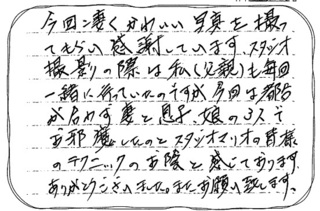 今回凄くかわいい写真を撮っ
てもらい感謝しています。スタジオ
撮影の際は私(父親)も毎回
一緒に行っていたのですが今回は都合
が合わず妻と息子、娘の3人で
お邪魔したのとスタジオマリオの皆様
のテクニックのお陰と感じております。
ありがとうございました。またお願い致します。